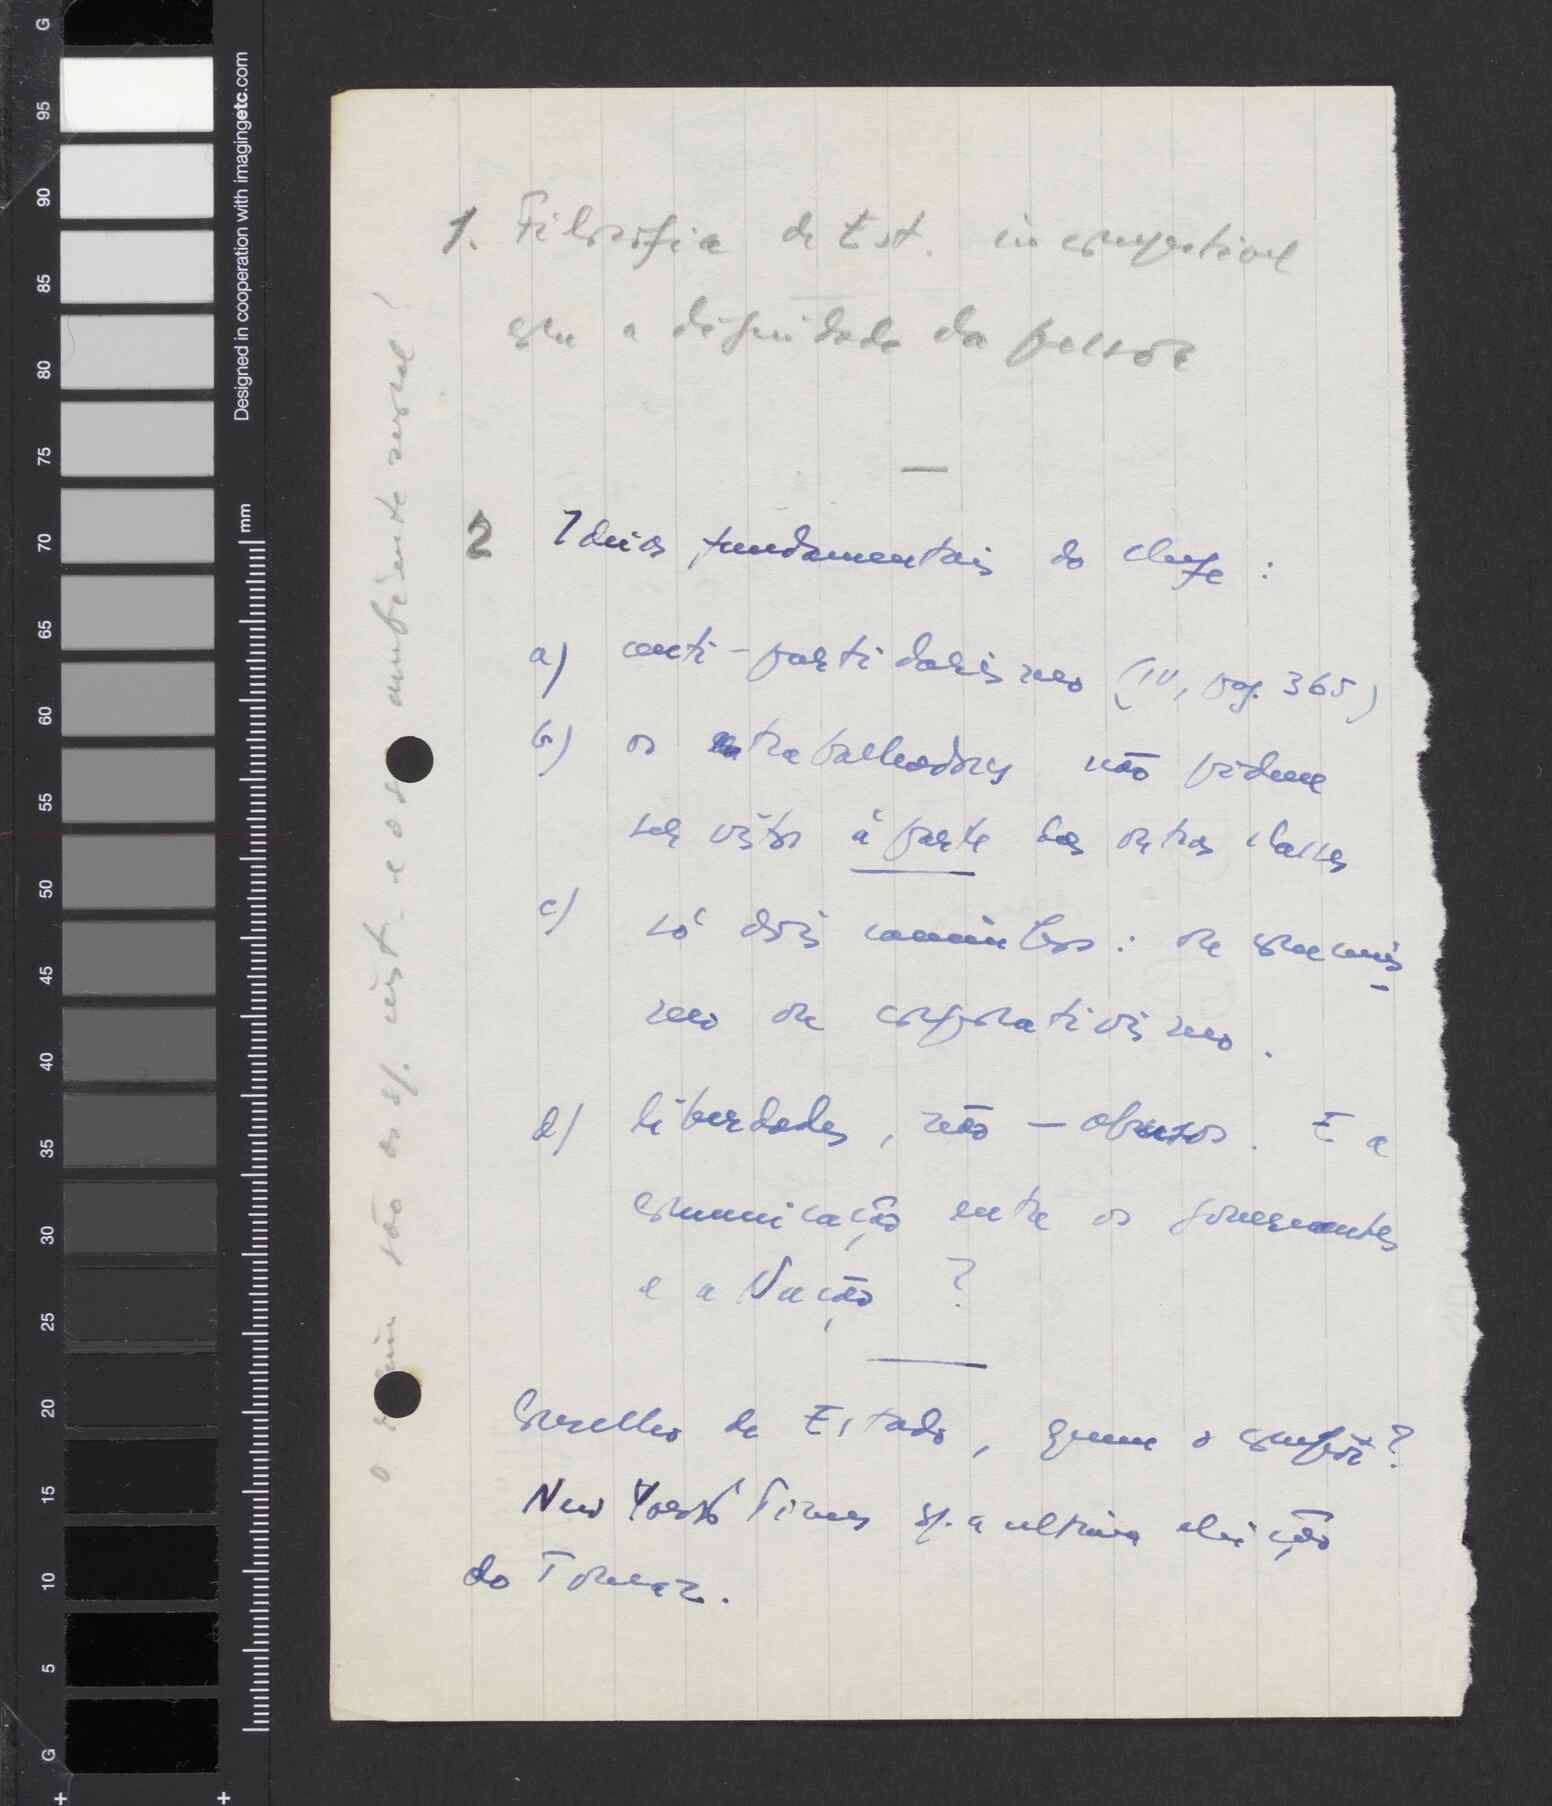 1. Filosofia de Est. incompatível
com a dignidade da pessoa
2 Ideias fundamentais do chefe :
a) anti-partidarismo (IV, pag. 365)
b) os trabalhadores não podem
ser vistos à parte das outras classes
c) só dois caminhos : ou comunis
mo ou corporativismo .
d) liberdades, não — abusos . E a
comunicação entre os governantes
e a Nação ?
Conselho de Estado, quem o compõe?
New York Times sp. a ultima eleição
do Tomaz .
são os sp. ambiente social !
Designed in cooperation with imagingetc.com
mm
G
95
90
85
80
75
70
65
60
55
50
45
40
35
30
25
20
15
10
5
G